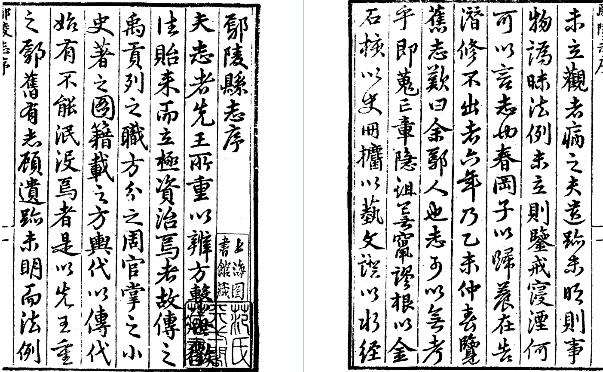 鄢陵縣志序
夫志者先王所重以辨方
法貽來而立極資治焉者故傳之
禹貢列之職方分之周官掌之小
史著之圖籍載之方輿代以傳代
始有不能泯沒焉者是以先王重
之鄢舊有志顧遺跡未明而法例
上海圖
書館藏
范氏
未立觀者病之夫遺跡未明則事
物譌昧法例未立則鑒戒寖湮何
可以言志也春岡子以歸養在告
潛修不出者六年乃乙未仲春覽
舊志歎曰余鄢人也志可以無考
乎即蒐亡隱竄謬根以金
石核以史冊擴以藝文證以水經